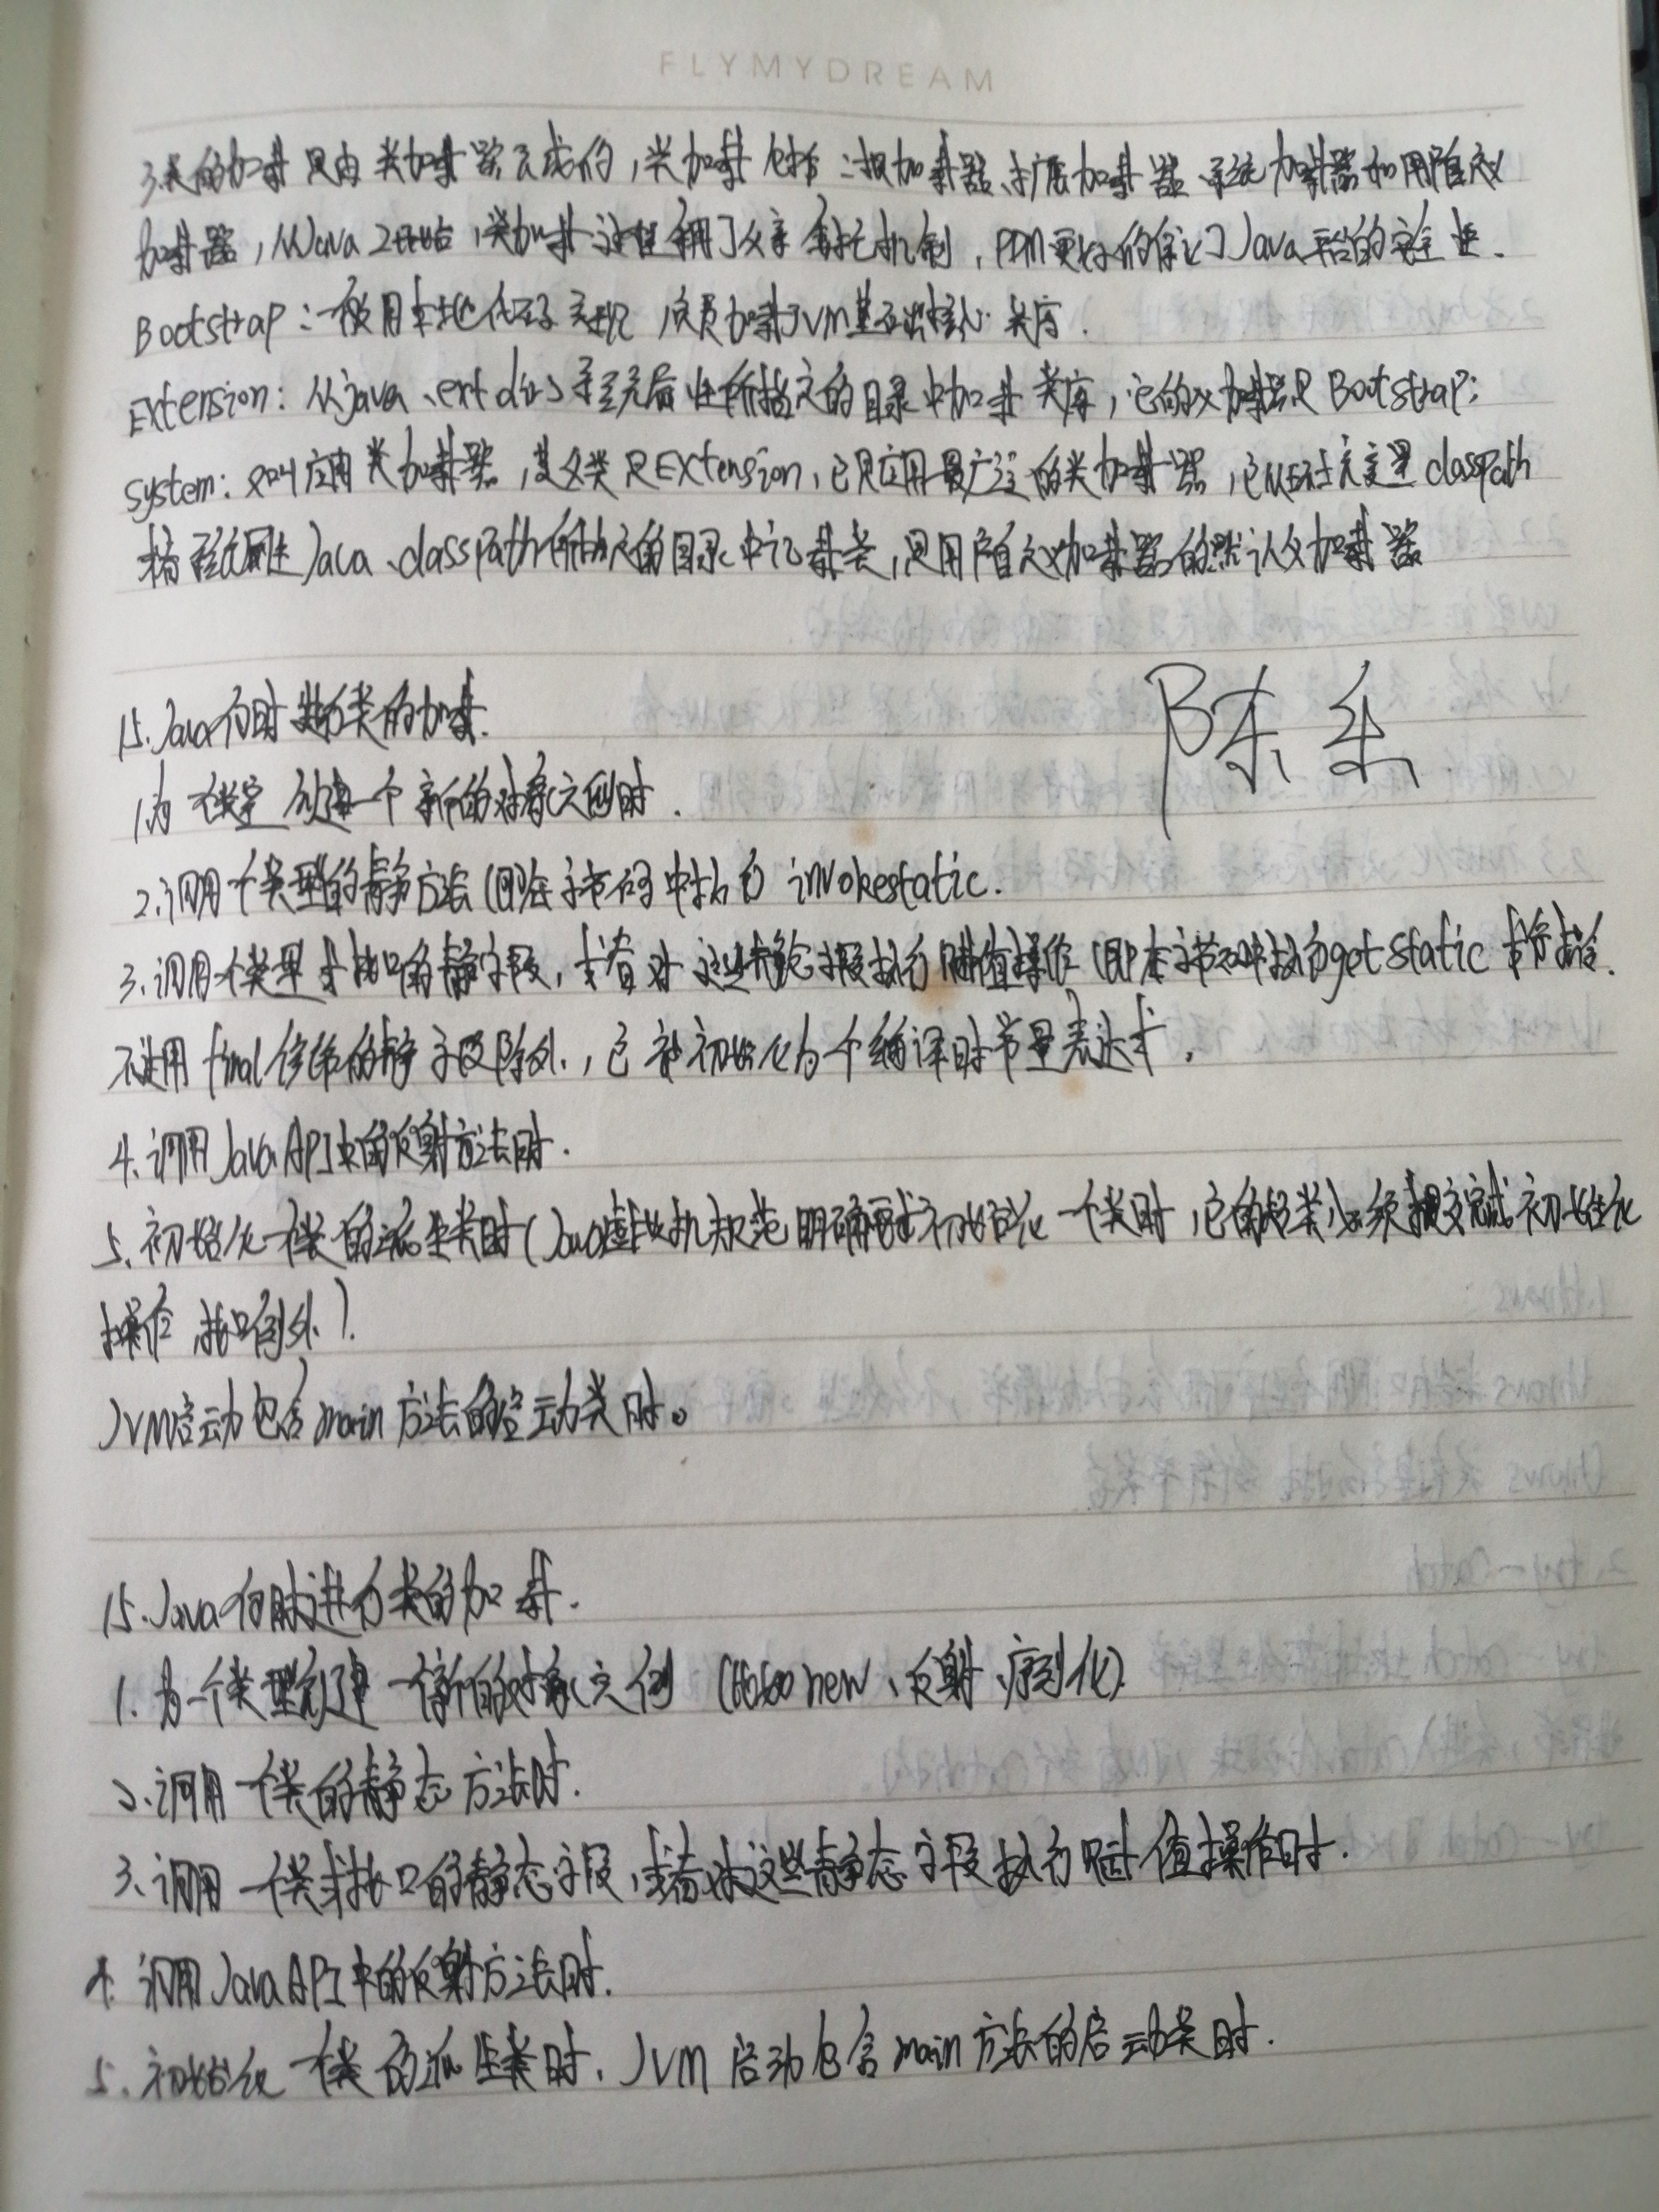 FLYMYDREAM
3.类的加载是由类加载器完成的,类加载包括:根加载器、扩展加载器、系统加载器和用户自定义
加载器,从Java 2开始,类加载过程采用了父亲委托机制,PDM更好的保证了Java平台的安全性.
Bootstrap:一般用本地代码实现,负责加载JVM基础核心类库.
Extension:从java.ext.dirs系统属性所指定的目录中加载类库,它的父加载器是Bootstrap;
System:又叫应用类加载器,其父类是Extension,它是应用最广泛的类加载器,它从环境变量classpath
或系统属性java.classpath所指定的目录中记载类,是用户自定义加载器的默认父加载器
15.Java何时进行类的加载.
1.为一个类型创建一个新的对象实例时.
2.调用一个类型的静态方法(即在字节码中执行invokestatic.
3.调用一个类型或接口的静态字段,或者对这些静态字段执行赋值操作(即在字节码中执行getstatic
不过用final修饰的静态字段除外,它被初始化为一个编译时常量表达式.
4.调用Java API中的反射方法时.
5.初始化一个类的派生类时(Java虚拟机规范明确要求初始化一个类时,它的超类必须提交完成初始化
操作,接口例外).
JVM启动包含main方法的启动类时。
陈
15.Java何时进行类的加载.
1.为一个类型创建一个新的对象实例(new、反射、序列化)
2.调用一个类的静态方法时.
3.调用一个类或接口的静态字段,或者对这些静态字段执行赋值操作时.
4.调用Java API中的反射方法时.
5.初始化一个类的派生类时.JVM启动包含main方法的启动类时.